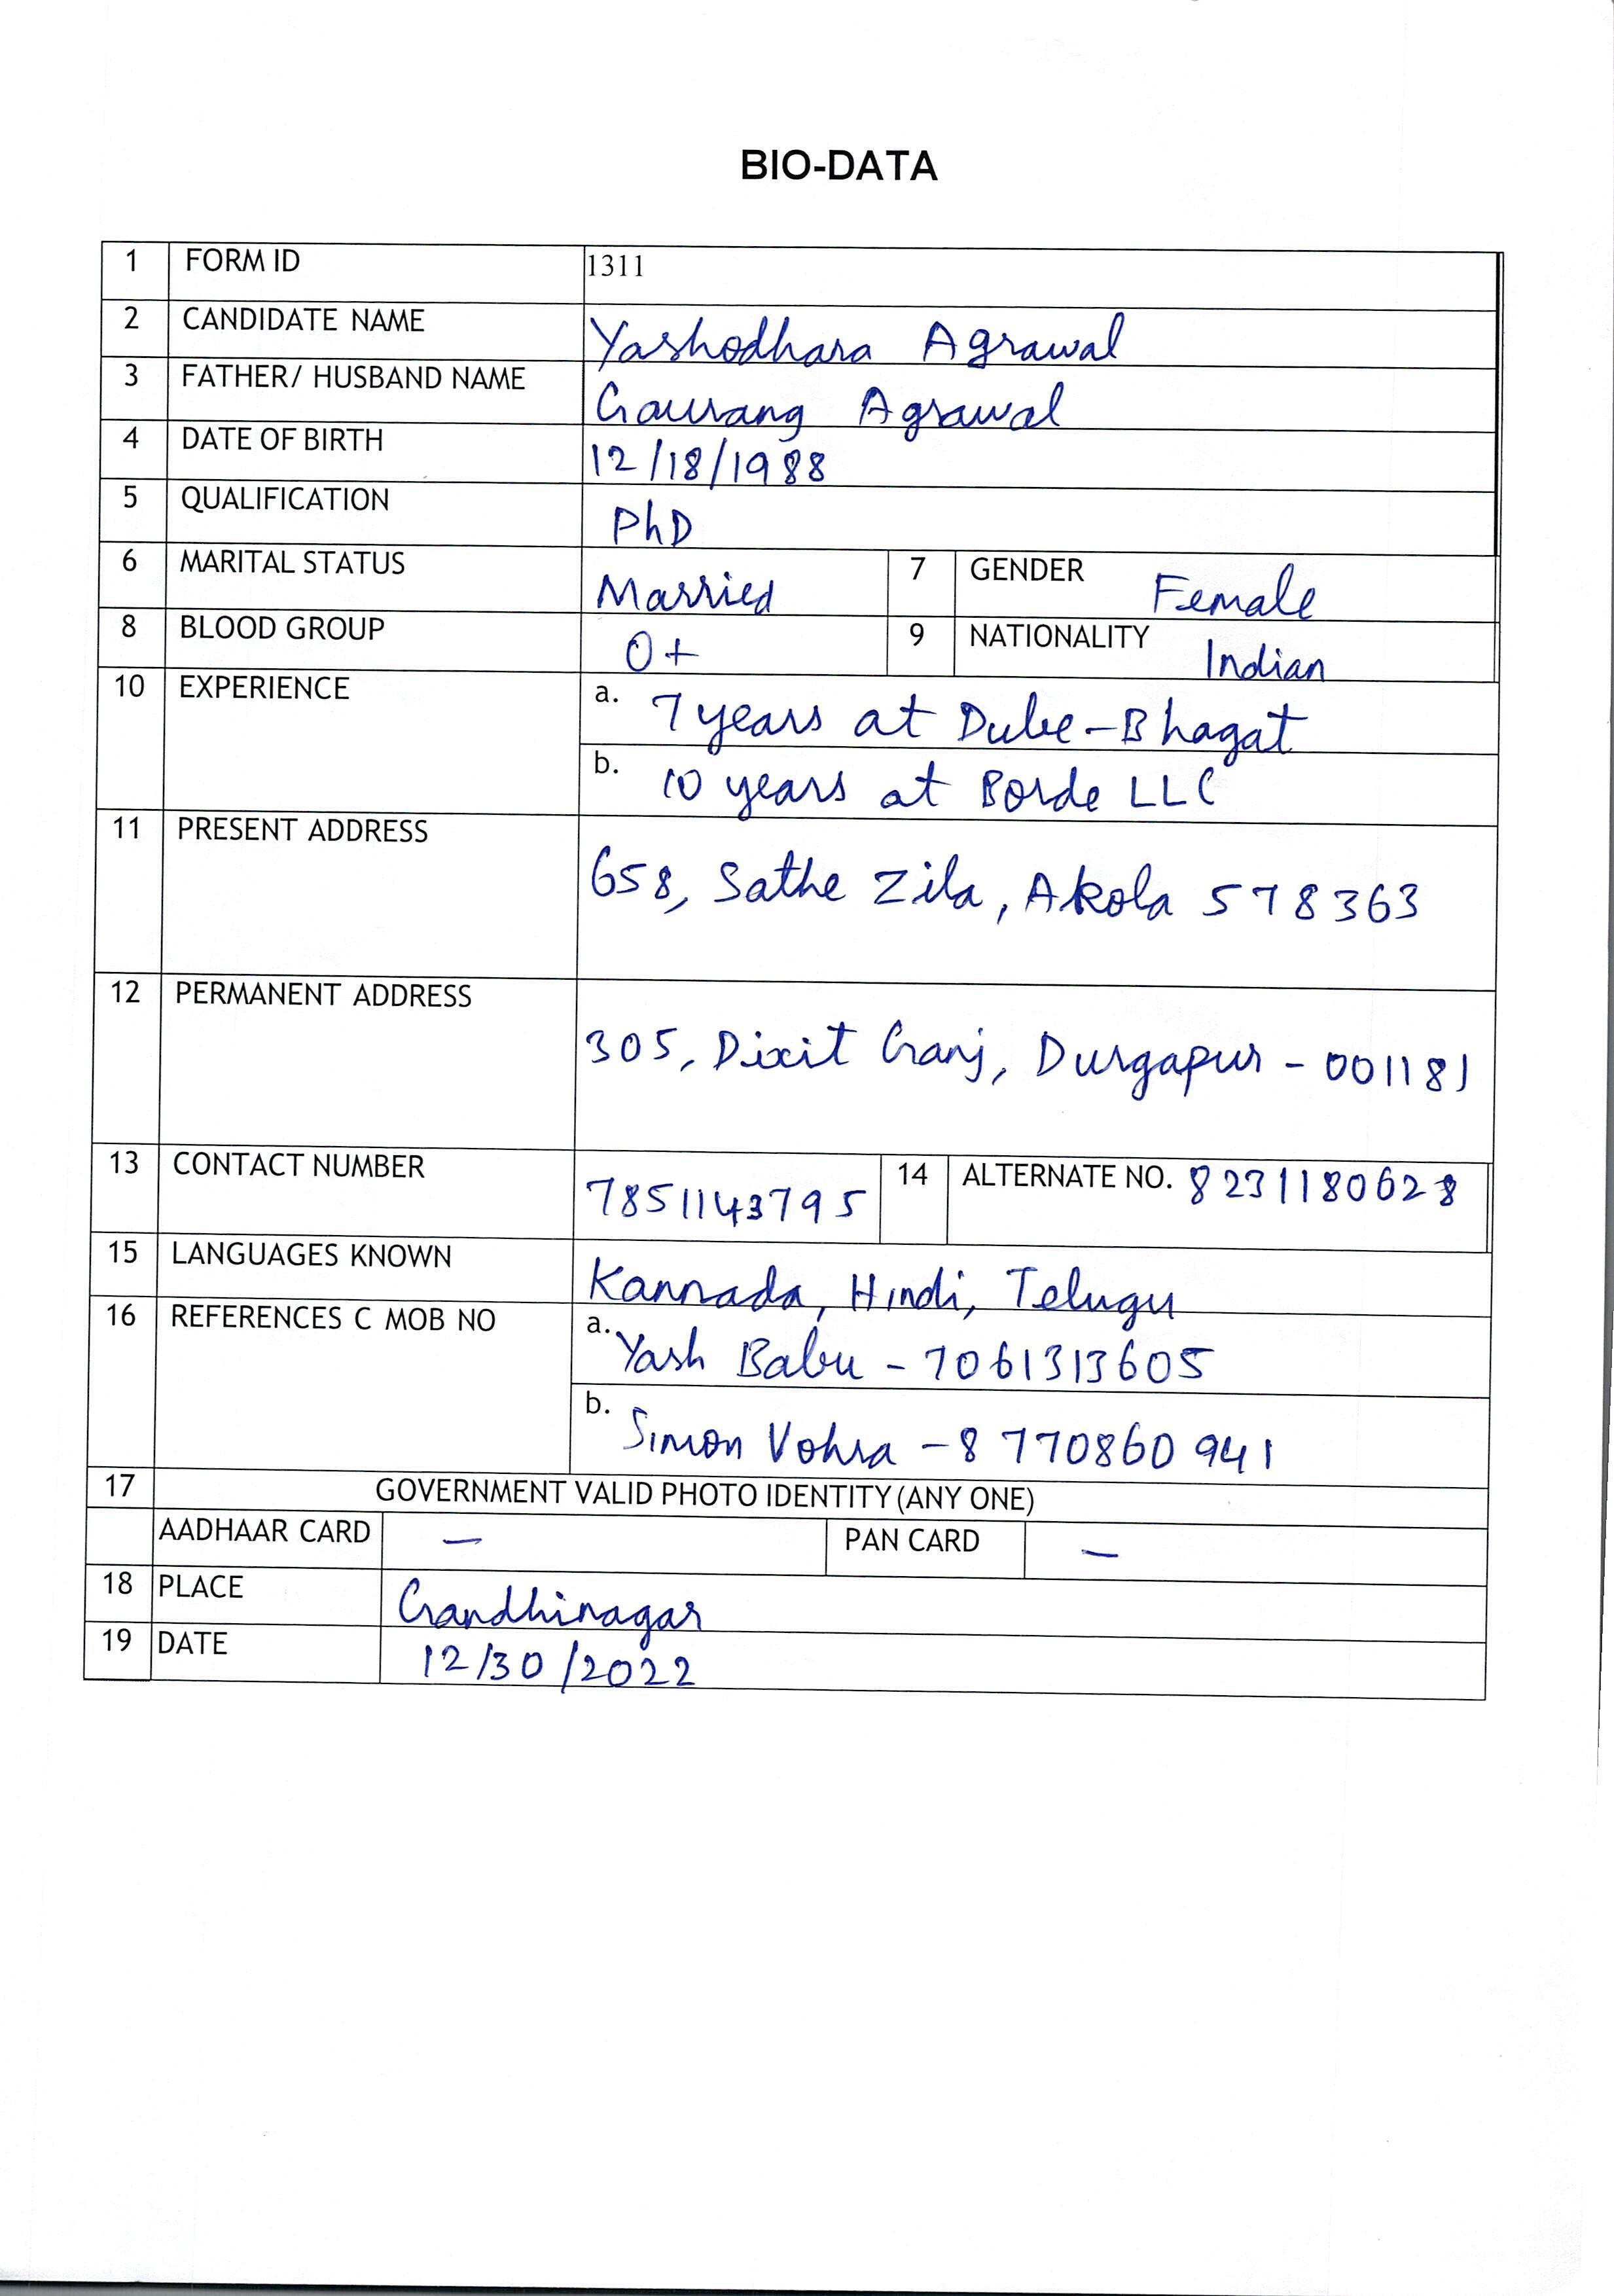 BIO-DATA
1 FORM ID 1311
2 CANDIDATE NAME Yashodhara Agrawal
3 FATHER/ HUSBAND NAME Gaurang Agrawal
4 DATE OF BIRTH 12/18/1988
5 QUALIFICATION PhD
6 MARITAL STATUS Married 7 GENDER Female
8 BLOOD GROUP O+ 9 NATIONALITY Indian
10 EXPERIENCE a. 7 years at Dube-Bhagat
b. 10 years at Borde LLC
11 PRESENT ADDRESS 658, Sathe Zila, Akola 578363
12 PERMANENT ADDRESS 305, Dixit Ganj, Durgapur - 001181
13 CONTACT NUMBER 7851143795 14 ALTERNATE NO. 8231180628
15 LANGUAGES KNOWN Kannada, Hindi, Telugu
16 REFERENCES C MOB NO a. Yash Babu - 7061313605
b. Simon Vohra - 8770860941
17 GOVERNMENT VALID PHOTO IDENTITY (ANY ONE)
AADHAAR CARD — PAN CARD —
18 PLACE Gandhinagar
19 DATE 12/30/2022